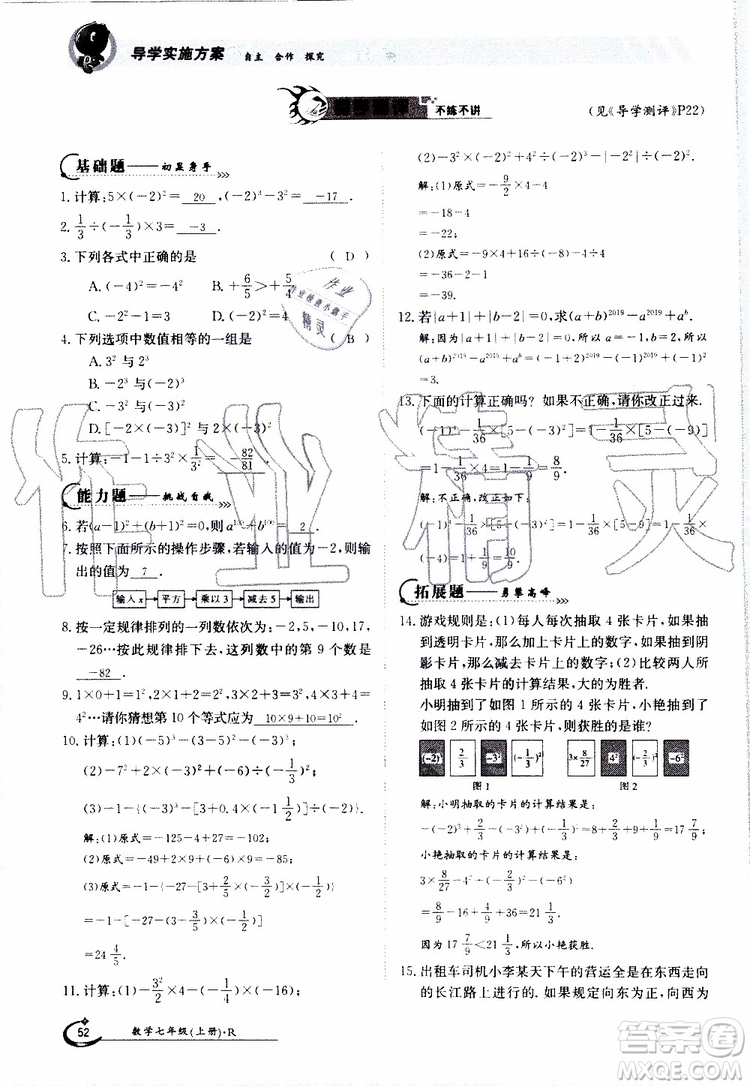 导学实施方案 自主 合作 探究
不练不讲
(见《导学测评》P22)
基础题——初显身手
1. 计算:5×(-2)²= 20 ,(-2)³-3²= -17 .
2. 1/3÷(-1/3)×3= -3 .
3. 下列各式中正确的是 ( D )
A. (-4)²=-4² B. +6/5>+5/4
C. -2²=-1³
4. 下列选项中数值相等的一组是 ( B )
A. 3²与2³
B. -2³与(-2)³
D. [-2×(-3)]²与2×(-3)²
5. 计算:-1-1÷3²×1/9= -82/81 .
能力题——挑战自我
6. 若(a-1)²+(b+1)²=0,则a²⁰¹⁸+b²⁰¹⁸= 2 .
7. 按照下面所示的操作步骤,若输入的值为-2,则输
出的值为 7 .
输入x→平方→乘以3→减去5→输出
8. 按一定规律排列的一列数依次为:-2,5,-10,17,
-26…按此规律排下去,这列数中的第9个数是
-82 .
9. 1×0+1=1²,2×1+2=2²,3×2+3=3²,4×3+4=
4²…请你猜想第10个等式应为 10×9+10=10² .
10. 计算:(1)(-5)³-3×(-1/2)
(2)-7²+2×(-3)²+(-6)÷(-1/3)²;
(3)-1-{(-3)³-[3+0.4×(-1 1/2)]÷(-2)}.
解:(1)原式=-125-4=
(2)原式=-49+2×9-6×9=
=-1-[-27-(-6/5)]
=24 4/5.
11. 计算:(1)-3²/2×4-(-1/4)×(-16)
(2)-3²-(-2)²×4²÷(-8/3)×(-2)².
解:(1)原式=-9/2×4-4
=-18-4
=-22;
=-39.
12. 若|a+1|+|b-2|=0,求(a+b)²⁰¹⁹-a²⁰¹⁹+aᵇ.
解:因为|a+1|+|b-2|=0,所以a=-1,b=2,所以
(a+b)²⁰¹⁹-a²⁰¹⁹+aᵇ=(-1+2)²⁰¹⁹-(-1)²⁰¹⁹+(-1)²
=3.
13. 下面的计算正确吗?如果不正确,请你改正过来.
(-1)⁴-1/36×[5-(-9)]
=1-1/36×4=1-1/9=8/9.
解:不正确,改正如下:
(-4)=1+1/9=10/9.
拓展题——勇攀高峰
14. 游戏规则是:(1)每人每次抽取4张卡片,如果抽
到透明卡片,那么加上卡片上的数字;如果抽到阴
影卡片,那么减去卡片上的数字;(2)比较两人所
抽取4张卡片的计算结果,大的为胜者.
小明抽到了如图1所示的4张卡片,小艳抽到了
如图2所示的4张卡片,则获胜的是谁?
(-2)³ 2/3 -3² (-1/3)² 3×8/27 4² (-2/3)² -6²
图1 图2
解:小明抽取的卡片的计算结果是:
-(-2)³+2/3-(-3²)+(-1/3)²=17 7/9.
小艳抽取的卡片的计算结果是:
3×8/27-4²+(-2/3)²-(-6²)
=8/9-16+4/9+36=21 1/3.
因为17 7/9<21 1/3,所以小艳获胜.
15. 出租车司机小李某天下午的营运全是在东西走向
的长江路上进行的.如果规定向东为正,向西为
52 数学七年级(上册)·R